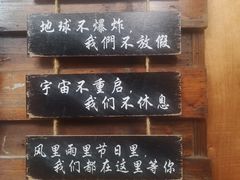 地球不爆炸，
我們不放假
宇宙不重启，
我们不休息
风里雨里节日里
我们都在这里等你